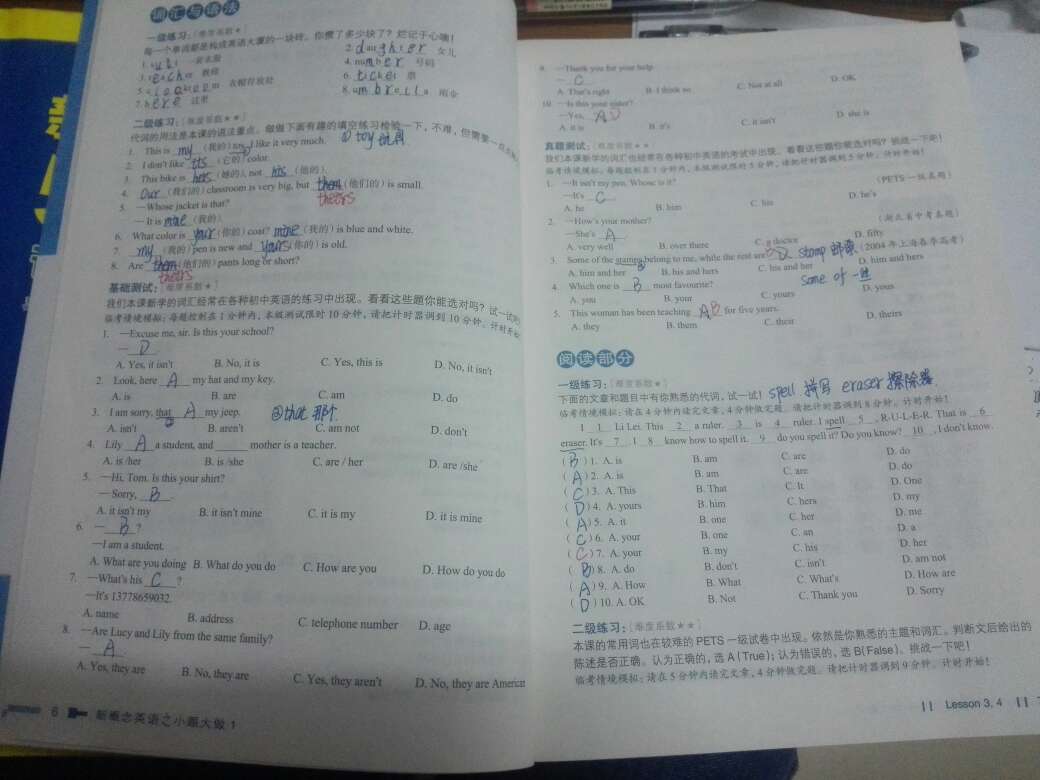 词汇与语法
一级练习：[难度系数★]
每一个单词都是构成英语大厦的一块砖，你攒了多少块了？烂记于心噢！
1. suit 一套衣服
2. daughter 女儿
3. teacher 教师
4. number 号码
5. cloakroom 衣帽存放处
6. ticket 票
7. here 这里
8. umbrella 雨伞
二级练习：[难度系数★★]
代词的用法是本课的语法重点。做做下面有趣的填空练习检验一下，不难，但需要一点点
1. This is my (我的) toy. I like it very much. ①toy 玩具
2. I don't like its (它的) color.
3. This bike is hers (她的), not his (他的).
4. Our (我们的) classroom is very big, but them (他们的) is small.
theirs
5. —Whose jacket is that?
—It is mine (我的).
6. What color is your (你的) coat? mine (我的) is blue and white.
7. my (我的) pen is new and yours (你的) is old.
8. Are them (他们的) pants long or short?
theirs
基础测试：[难度系数★]
我们本课新学的词汇经常在各种初中英语的练习中出现。看看这些题你能选对吗？试一试
临考情境模拟：每题控制在1分钟内，本级测试限时10分钟，请把计时器调到10分钟。计时开始
1. —Excuse me, sir. Is this your school?
— D
A. Yes, it isn't B. No, it is C. Yes, this is D. No, it isn't
2. Look, here A my hat and my key.
A. is B. are C. am D. do
3. I am sorry, that A my jeep. ②that 那个
A. isn't B. aren't C. am not D. don't
4. Lily A a student, and ______ mother is a teacher.
A. is /her B. is /she C. are / her D. are /she
5. —Hi, Tom. Is this your shirt?
— Sorry, B .
A. it isn't my B. it isn't mine C. it is my D. it is mine
6. — B ?
—I am a student.
A. What are you doing B. What do you do C. How are you D. How do you do
7. —What's his C ?
—It's 13778659032.
A. name B. address C. telephone number D. age
8. —Are Lucy and Lily from the same family?
— A .
A. Yes, they are B. No, they are C. Yes, they aren't D. No, they are American
6 新概念英语之小题大做 1
9. —Thank you for your help.
— C
A. That's right B. I think so C. Not at all D. OK
10. —Is this your sister?
—Yes, A D
A. it is B. it's C. it isn't D. she is
真题测试：[难度系数★★]
我们本课新学的词汇也经常在各种初中英语的考试中出现。看看这些题你能选对吗？挑战一下吧！
临考情境模拟：每题控制在1分钟内，本级测试限时5分钟，请把计时器调到5分钟。计时开始！
1. —It isn't my pen. Whose is it? (PETS 一级真题)
—It's C .
A. he B. him C. his D. he's
2. —How's your mother? (湖北省中考真题)
—She's A .
A. very well B. over there C. a doctor D. fifty
3. Some of the stamps belong to me, while the rest are D. stamp 邮票 (2004年上海春季高考)
A. him and her B. his and hers C. his and her D. him and hers
some of 一些
4. Which one is B most favourite?
A. you B. your C. yours D. yous
5. This woman has been teaching A B for five years.
A. they B. them C. their D. theirs
阅读部分
一级练习：[难度系数★] spell 拼写 eraser 擦除器
下面的文章和题目中有你熟悉的代词，试一试！
临考情境模拟：请在4分钟内读完文章，4分钟做完题。请把计时器调到8分钟。计时开始！
I 1 Li Lei. This 2 a ruler. 3 is 4 ruler. I spell 5 , R-U-L-E-R. That is 6
eraser. It's 7 . I 8 know how to spell it. 9 do you spell it? Do you know? 10 , I don't know.
( B ) 1. A. is B. am C. are D. do
( A ) 2. A. is B. am C. are D. do
( C ) 3. A. This B. That C. It D. One
( D ) 4. A. yours B. him C. hers D. my
( A ) 5. A. it B. one C. her D. me
( C ) 6. A. your B. one C. an D. a
( C ) 7. A. your B. my C. his D. her
( B ) 8. A. do B. don't C. isn't D. am not
( A ) 9. A. How B. What C. What's D. How are
( D ) 10. A. OK B. Not C. Thank you D. Sorry
二级练习：[难度系数★★]
本课的常用词也在较难的 PETS 一级试卷中出现。依然是你熟悉的主题和词汇。判断文后给出的
陈述是否正确。认为正确的，选 A (True)；认为错误的，选 B (False)。挑战一下吧！
临考情境模拟：请在5分钟内读完文章，4分钟做完题。请把计时器调到9分钟。计时开始！
Lesson 3, 4 7